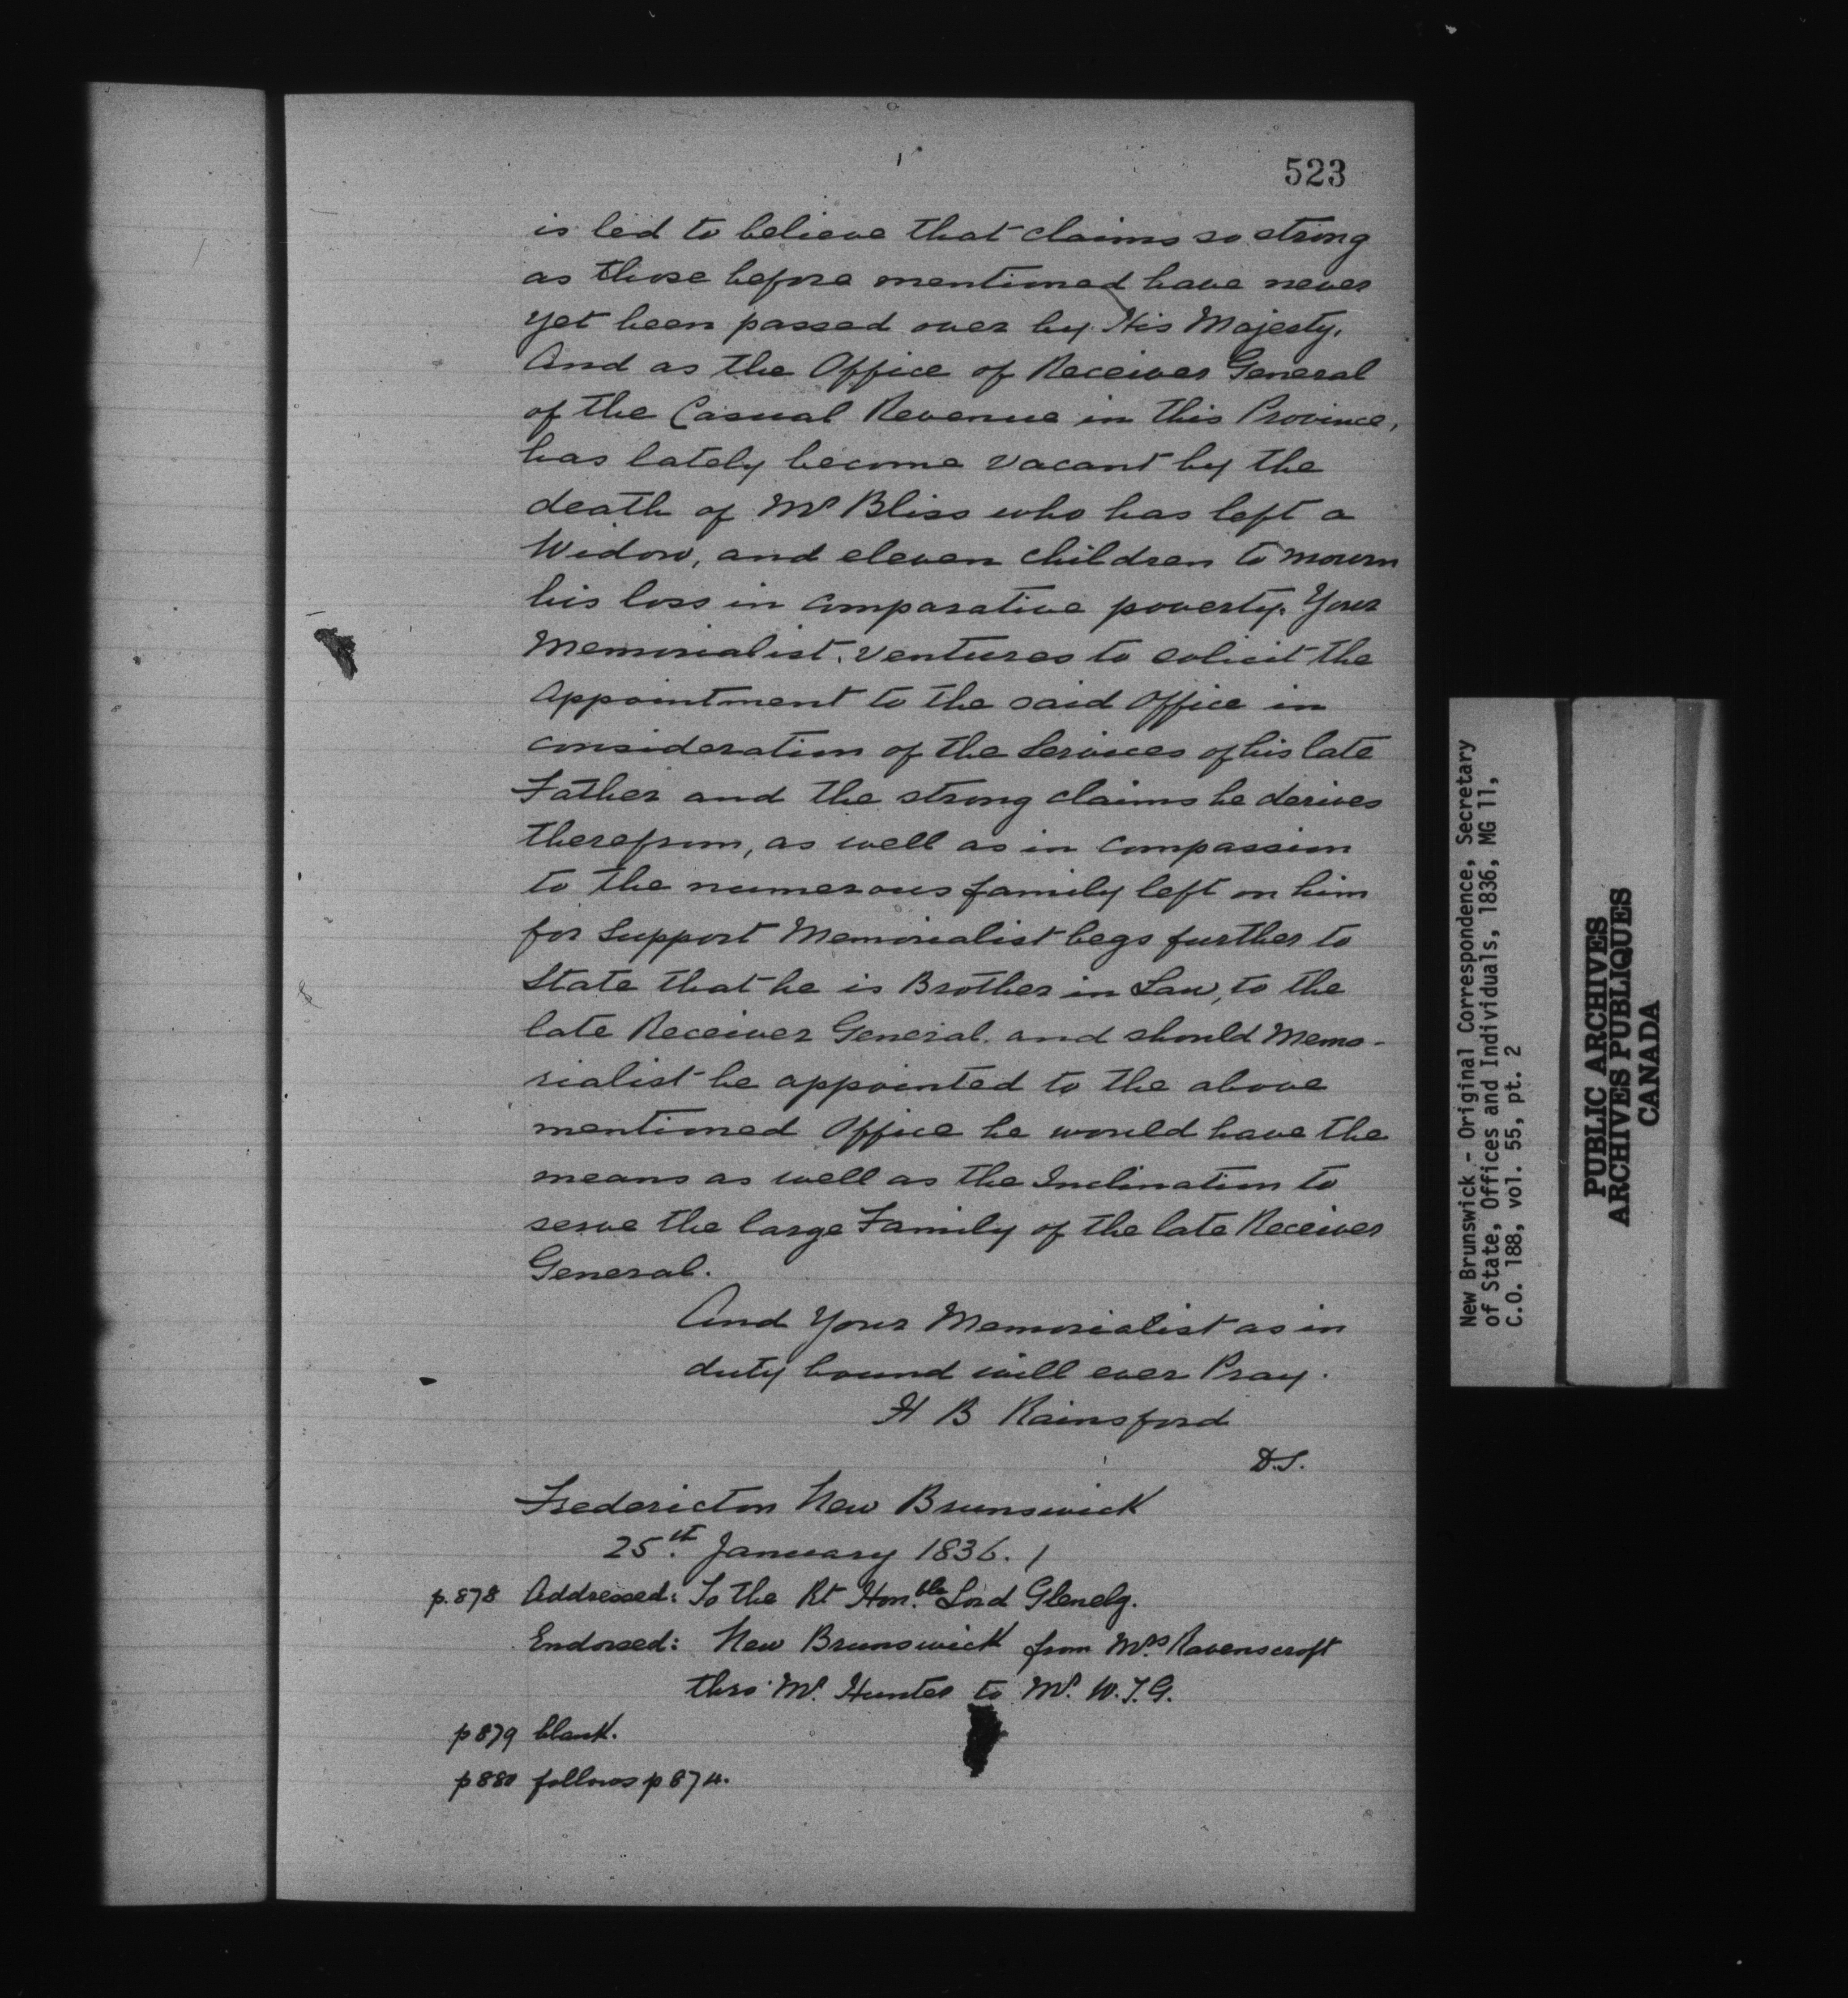 523
is led to believe that claims so strong
as those before mentioned have never
yet been passed over by His Majesty.
And as the Office of Receiver General
of the Casual Revenue in this Province,
has lately become vacant by the
death of Mr Bliss who has left a
Widow, and eleven children to mourn
his loss in comparative poverty. Your
Memorialist, ventures to solicit the
appointment to the said Office in
consideration of the Services of his late
Father and the strong claims he derives
therefrom, as well as in compassion
to the numerous family left on him
for Support Memorialist begs further to
State that he is Brother in Law, to the
late Receiver General. and should Memo-
rialist be appointed to the above
mentioned Office he would have the
means as well as the Inclination to
serve the large Family of the late Receiver
General.
And Your Memorialist as in
duty bound will ever Pray.
H B Rainsford
D.S.
Fredericton New Brunswick
25th January 1836. /
p.878 Addressed: To the Rt Honble Lord Glenelg.
Endorsed: New Brunswick from Mrs Ravenscroft
thro' Mr. Hunter to Mr. W.T.G.
p879 blank.
p880 follows p874.
New Brunswick - Original Correspondence, Secretary
of State, Offices and Individuals, 1836, MG 11,
C.O. 188, vol. 55, pt. 2
PUBLIC ARCHIVES
ARCHIVES PUBLIQUES
CANADA